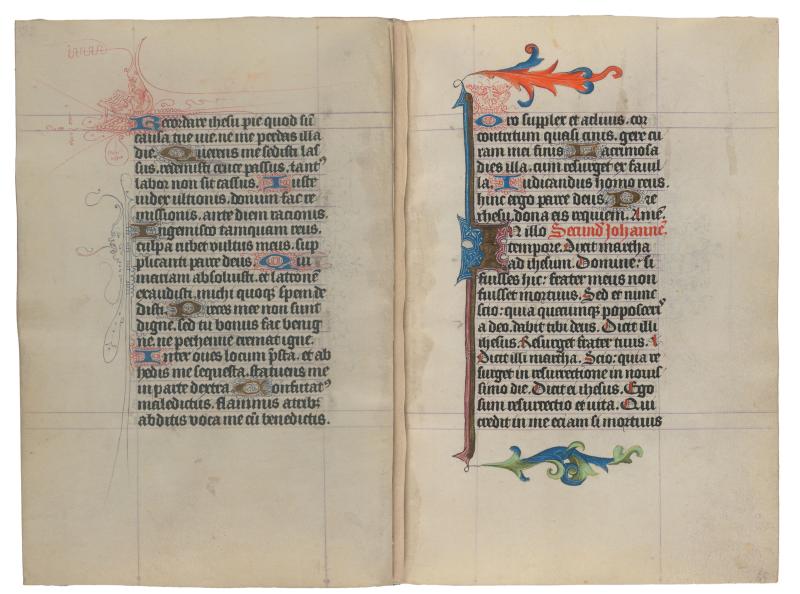 Recordare ihesu pie quod sū
causa tue vie. ne me perdas illa
die. Querens me sedisti las
sus. redemisti cruce passus. tantꝰ
labor non sit cassus. Iuste
iudex ultionis. donum fac re
missionis. ante diem racionis.
Ingemisco tamquam reus.
culpa rubet vultus meus. sup
plicanti parce deus. Qui
mariam absoluisti. et latronē
exaudisti. michi quoqꝫ spem de
disti. Preces mee non sunt
digne. sed tu bonus fac benig
ne. ne perhenne cremer igne.
Inter oues locum p̄sta. et ab
hedis me sequestra. statuens me
in parte dextra. Confutatꝰ
maledictus. flammis acribꝫ
abditis voca me cū benedictis.
Oro supplex et acliuis. cor
contritum quasi cinis. gere cu
ram mei finis. Lacrimosa
dies illa. cum resurget ex fauil
la. Iudicandus homo reus.
huic ergo parce deus. Pie
ihesu. dona eis requiem. Amē.
IN illo Secund Johannē.
tempore. Dixit martha
ad ihesum. Domine: si
fuisses hic: frater meus non
fuisset mortuus. Sed et nunc
scio: quia quecumqꝫ poposceris
a deo. dabit tibi deus. Dicit illi
ihesus. Resurget frater tuus.
Dicit illi martha. Scio: quia re
surget in resurrectione in nouis
simo die. Dicit ei ihesus. Ego
sum resurrectio et uita. Qui
credit in me eciam si mortuus